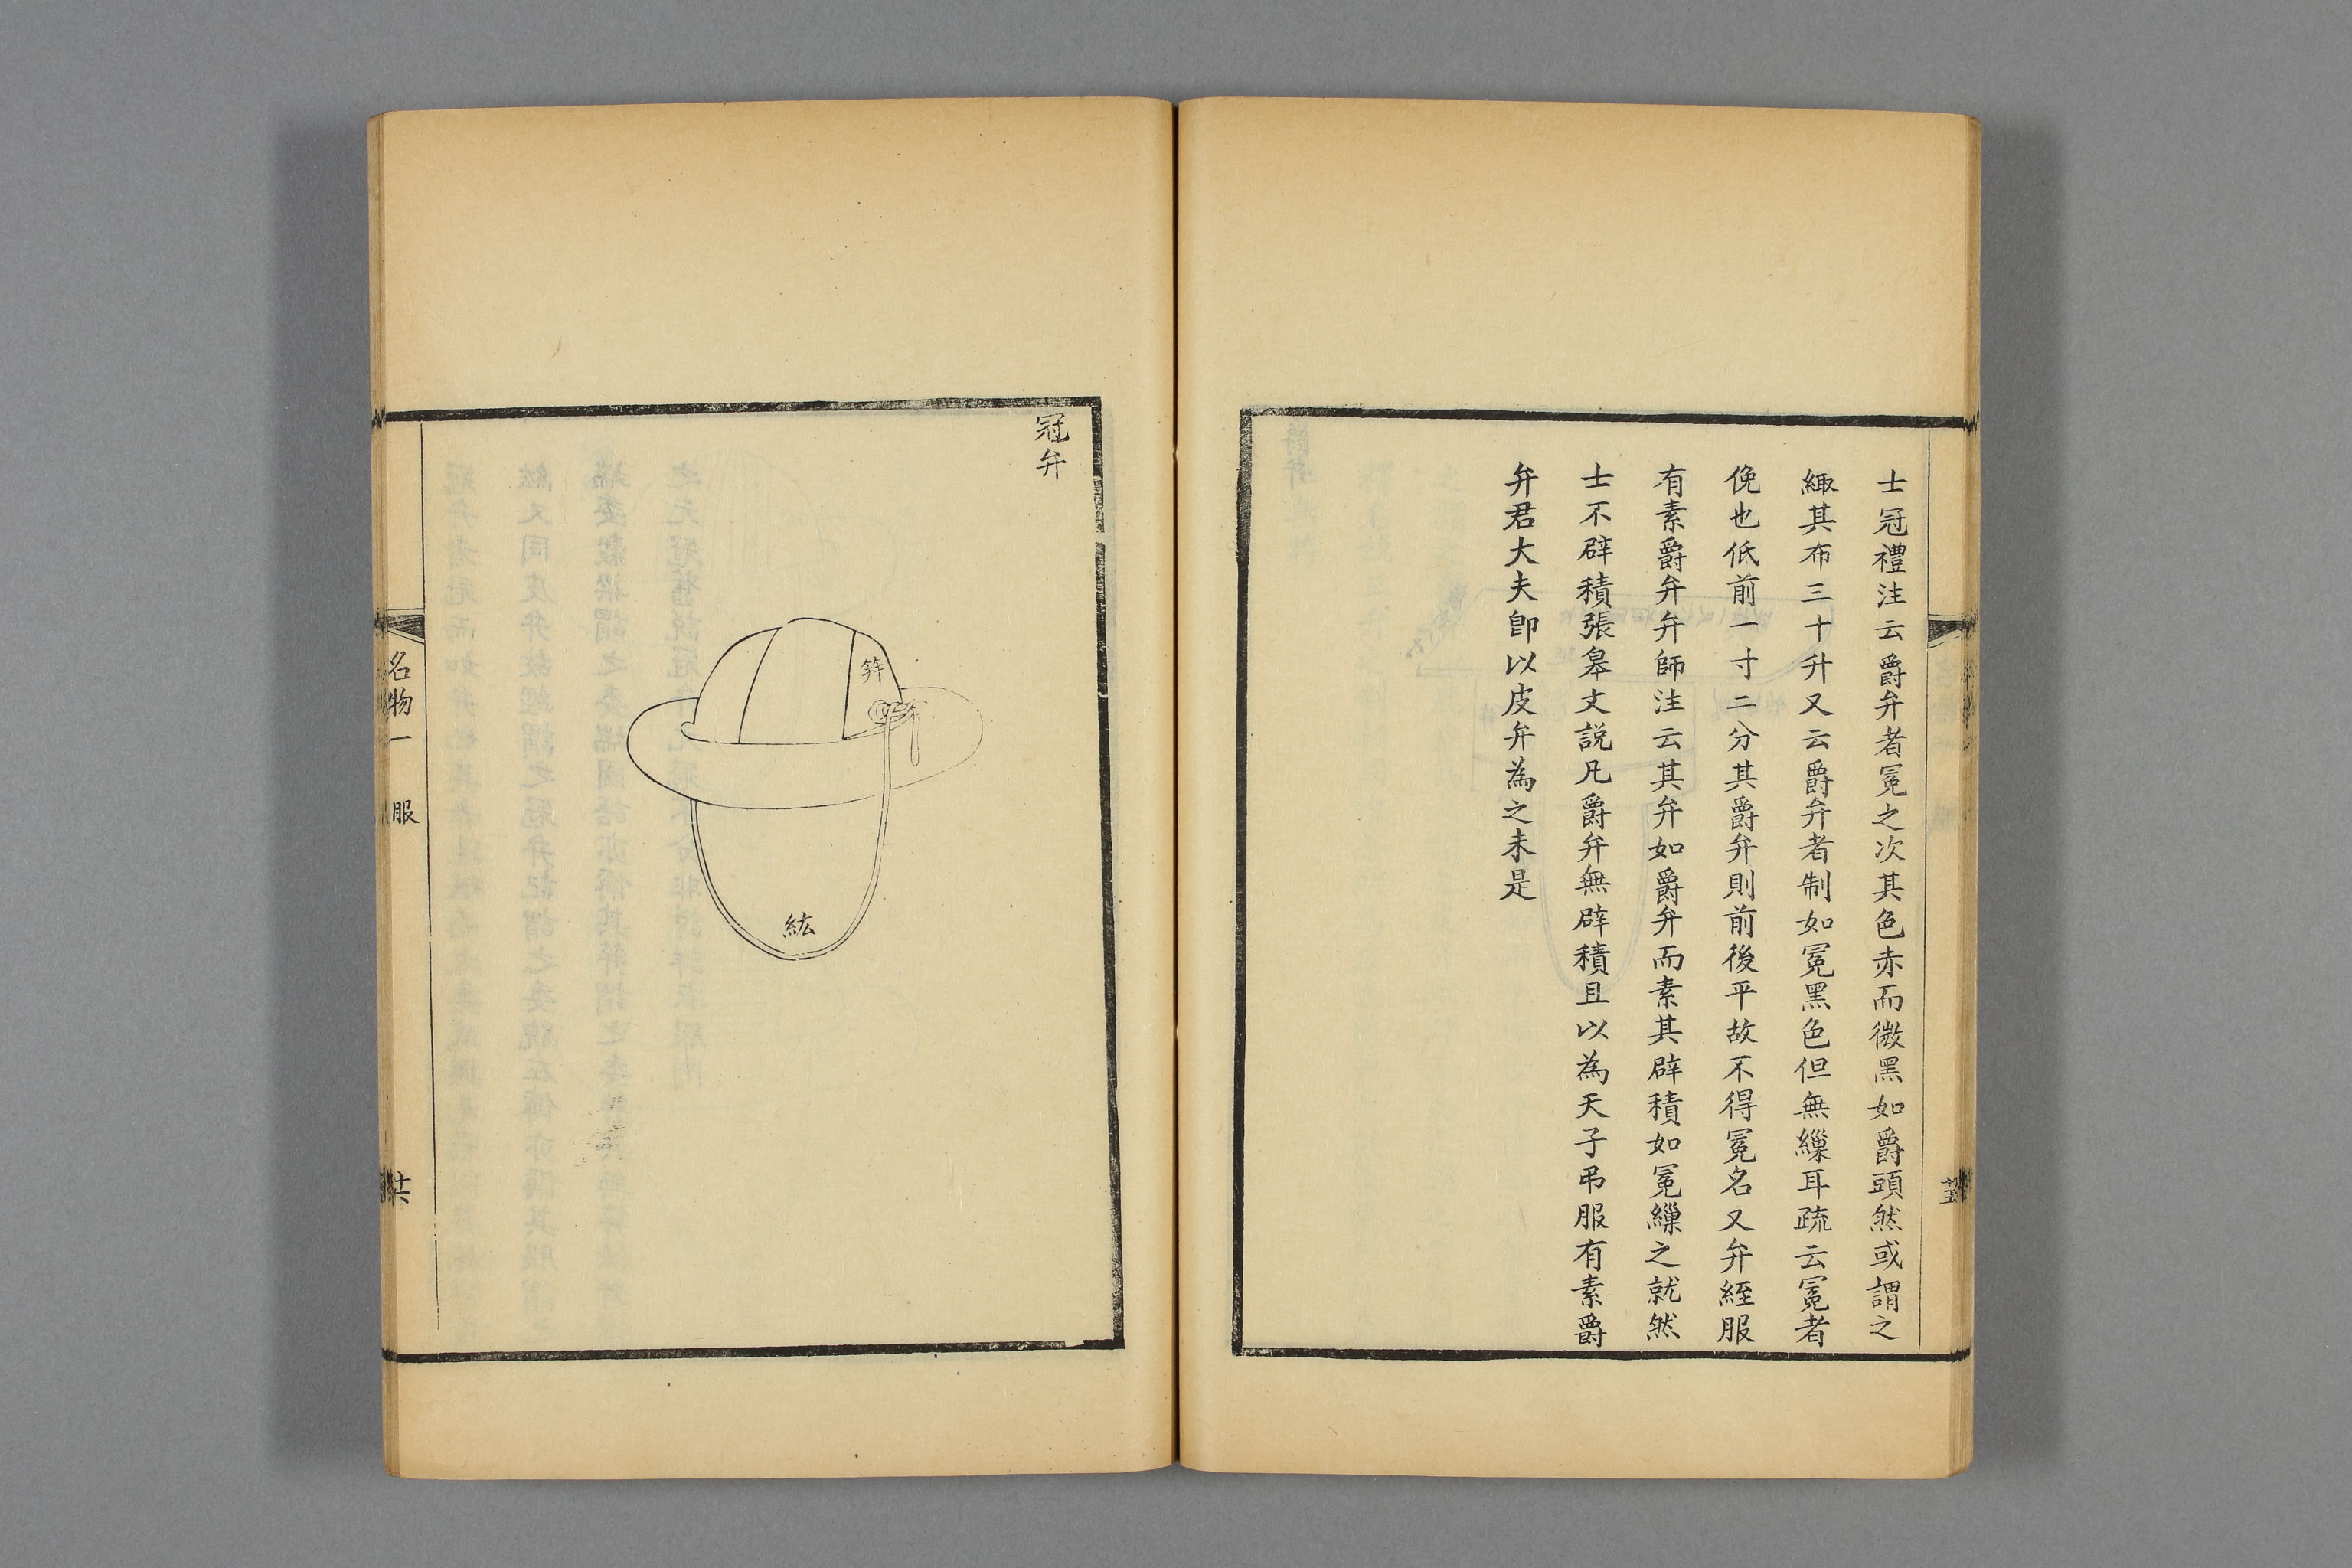 士冠禮注云爵弁者冕之次其色赤而微黑如爵頭然或謂之
緅其布三十升又云爵弁者制如冕黑色但無繅耳疏云冕者
俛也低前一寸二分其爵弁則前後平故不得冕名又弁絰服
有素爵弁弁師注云其弁如爵弁而素其辟積如冕繅之就然
士不辟積張皋文説凡爵弁無辟積且以為天子弔服有素爵
弁君大夫卽以皮弁為之未是
冠弁
筓
紘
名物一 服